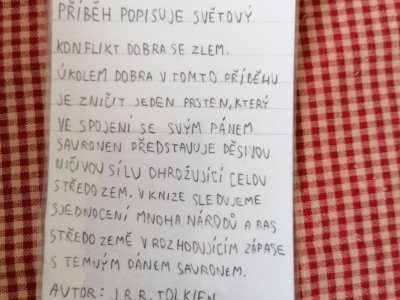 PŘÍBĚH POPISUJE SVĚTOVÝ
KONFLIKT DOBRA SE ZLEM.
ÚKOLEM DOBRA V TOMTO PŘÍBĚHU
JE ZNIČIT JEDEN PRSTEN, KTERÝ
VE SPOJENÍ SE SVÝM PÁNEM
SAURONEN PŘEDSTAVUJE DĚSIVOU
NIČIVOU SÍLU OHROŽUJÍCÍ CELOU
STŘEDOZEM. V KNIZE SLEDUJEME
SJEDNOCENÍ MNOHA NÁRODŮ A RAS
STŘEDOZEMĚ V ROZHODUJÍCÍM ZÁPASE
S TEMNÝM PÁNEM SAURONEM.
AUTOR: J.R.R. TOLKIEN